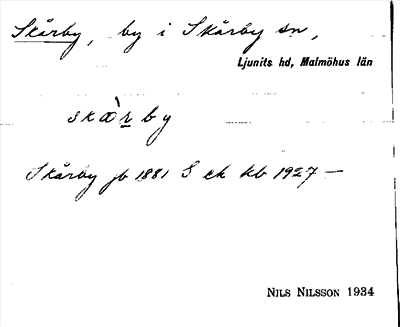 Skårby, by i Skårby sn,
Ljunits hd, Malmöhus län
skæ̀r̲by
Skårby jb 1881 S ek kb 1927 —
NILS NILSSON 1934